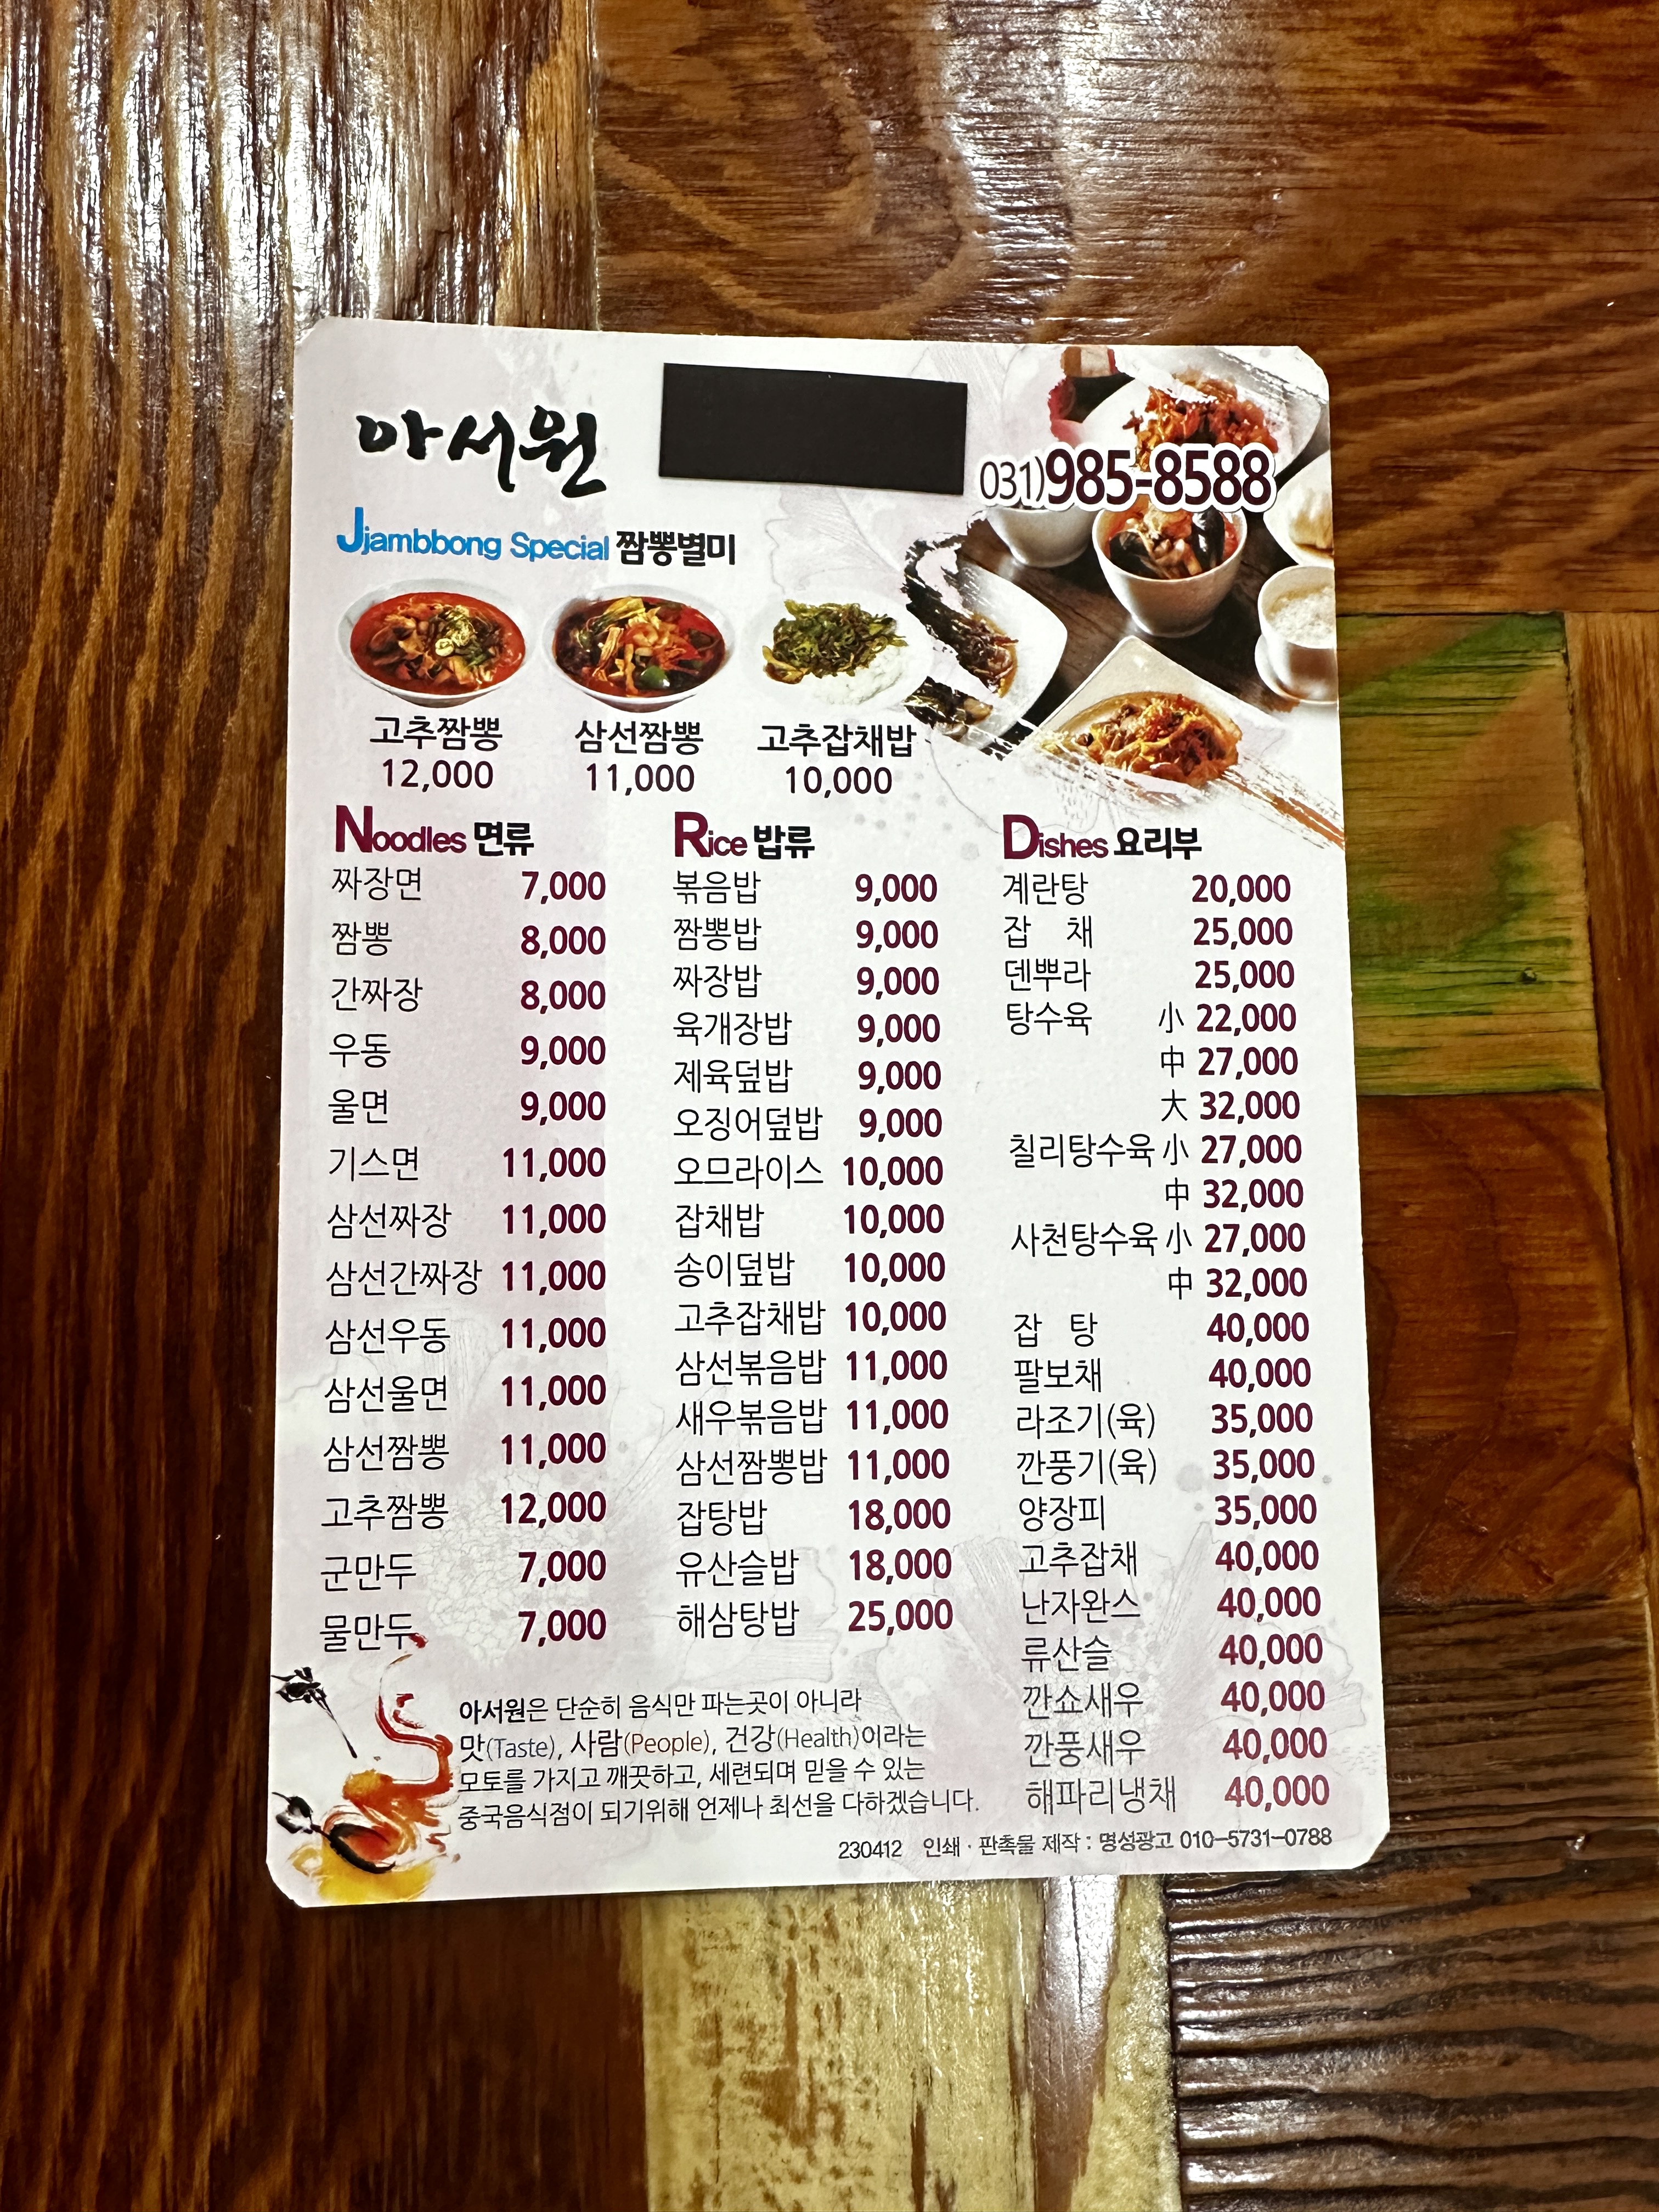 아서원
031)985-8588
Jjambbong Special 짬뽕별미
고추짬뽕 삼선짬뽕 고추잡채밥
12,000 11,000 10,000
Noodles 면류
짜장면 7,000
짬뽕 8,000
간짜장 8,000
우동 9,000
울면 9,000
기스면 11,000
삼선짜장 11,000
삼선간짜장 11,000
삼선우동 11,000
삼선울면 11,000
삼선짬뽕 11,000
고추짬뽕 12,000
군만두 7,000
물만두 7,000
Rice 밥류
볶음밥 9,000
짬뽕밥 9,000
짜장밥 9,000
육개장밥 9,000
제육덮밥 9,000
오징어덮밥 9,000
오므라이스 10,000
잡채밥 10,000
송이덮밥 10,000
고추잡채밥 10,000
삼선볶음밥 11,000
새우볶음밥 11,000
삼선짬뽕밥 11,000
잡탕밥 18,000
유산슬밥 18,000
해삼탕밥 25,000
Dishes 요리부
계란탕 20,000
잡 채 25,000
덴뿌라 25,000
탕수육 小 22,000
中 27,000
大 32,000
칠리탕수육 小 27,000
中 32,000
사천탕수육 小 27,000
中 32,000
잡 탕 40,000
팔보채 40,000
라조기(육) 35,000
깐풍기(육) 35,000
양장피 35,000
고추잡채 40,000
난자완스 40,000
류산슬 40,000
깐쇼새우 40,000
깐풍새우 40,000
해파리냉채 40,000
아서원은 단순히 음식만 파는곳이 아니라
맛(Taste), 사람(People), 건강(Health)이라는
모토를 가지고 깨끗하고, 세련되며 믿을 수 있는
중국음식점이 되기위해 언제나 최선을 다하겠습니다.
230412 인쇄 · 판촉물 제작 : 명성광고 010-5731-0788